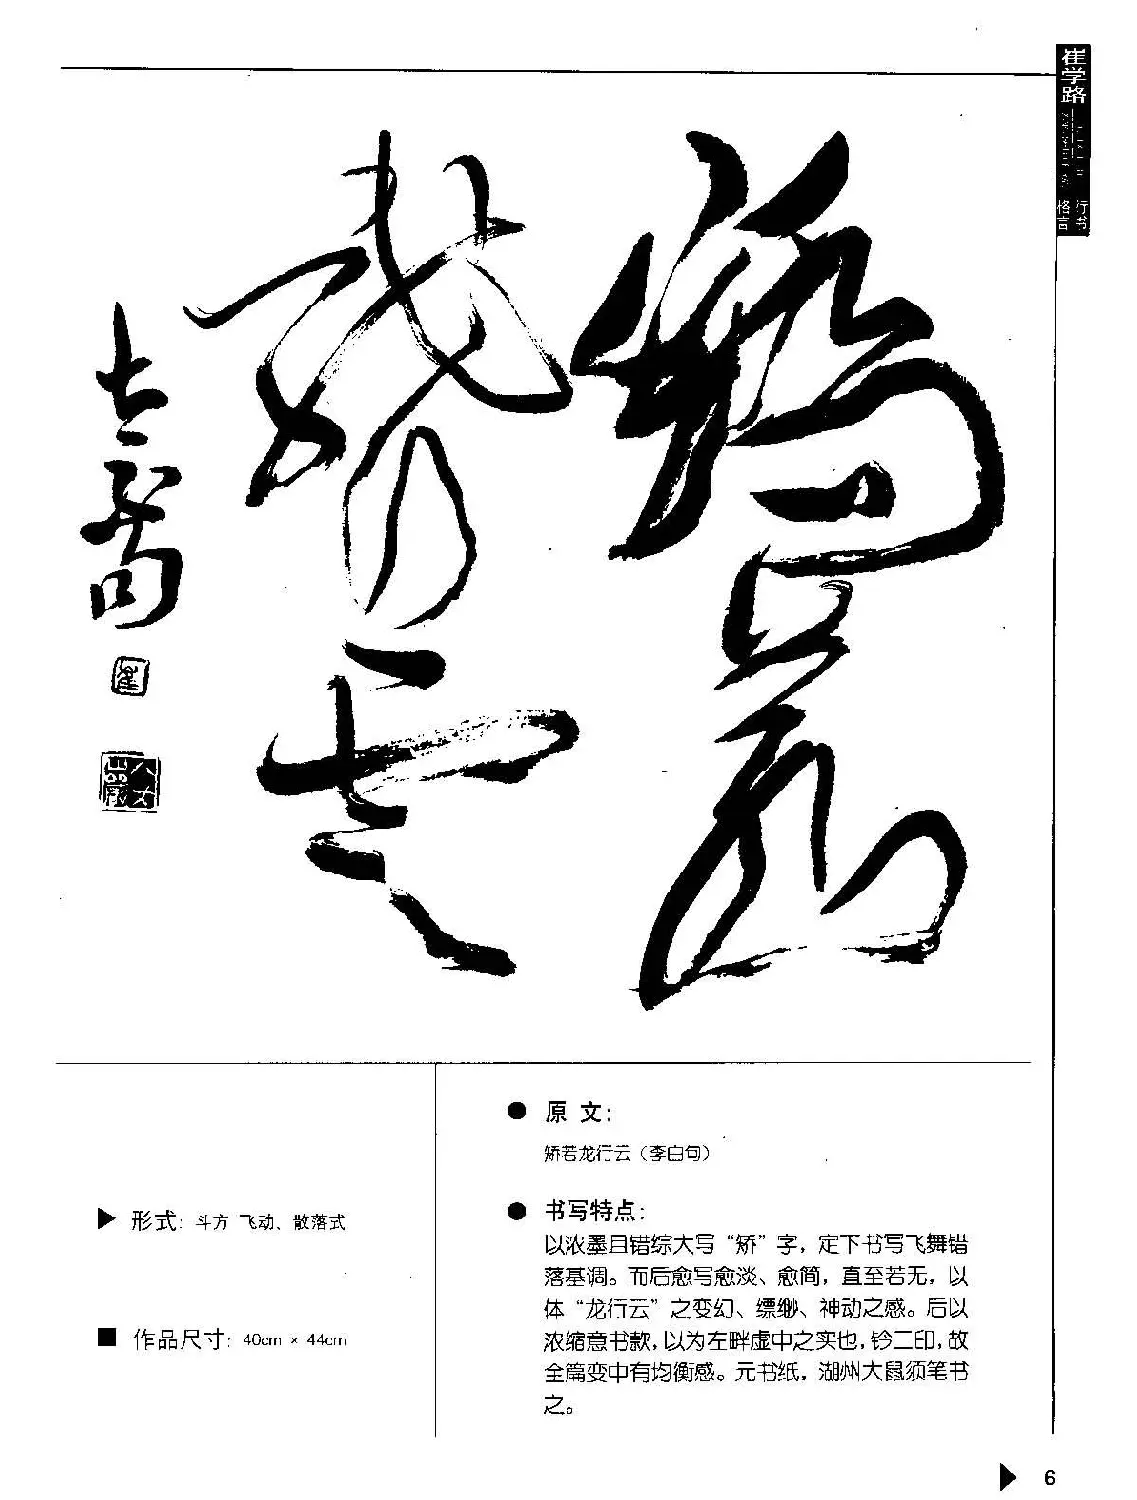 崔学路
行书
格言
矫若
龙行云
● 原 文：
矫若龙行云（李白句）
▶ 形式：斗方 飞动、散落式
■ 作品尺寸：40cm × 44cm
● 书写特点：
以浓墨且错综大写“矫”字，定下书写飞舞错
落基调。而后愈写愈淡、愈简，直至若无，以
体“龙行云”之变幻、缥缈、神动之感。后以
浓缩意书款，以为左畔虚中之实也，钤二印，故
全篇变中有均衡感。元书纸，湖州大鼠须笔书
之。
▶ 6